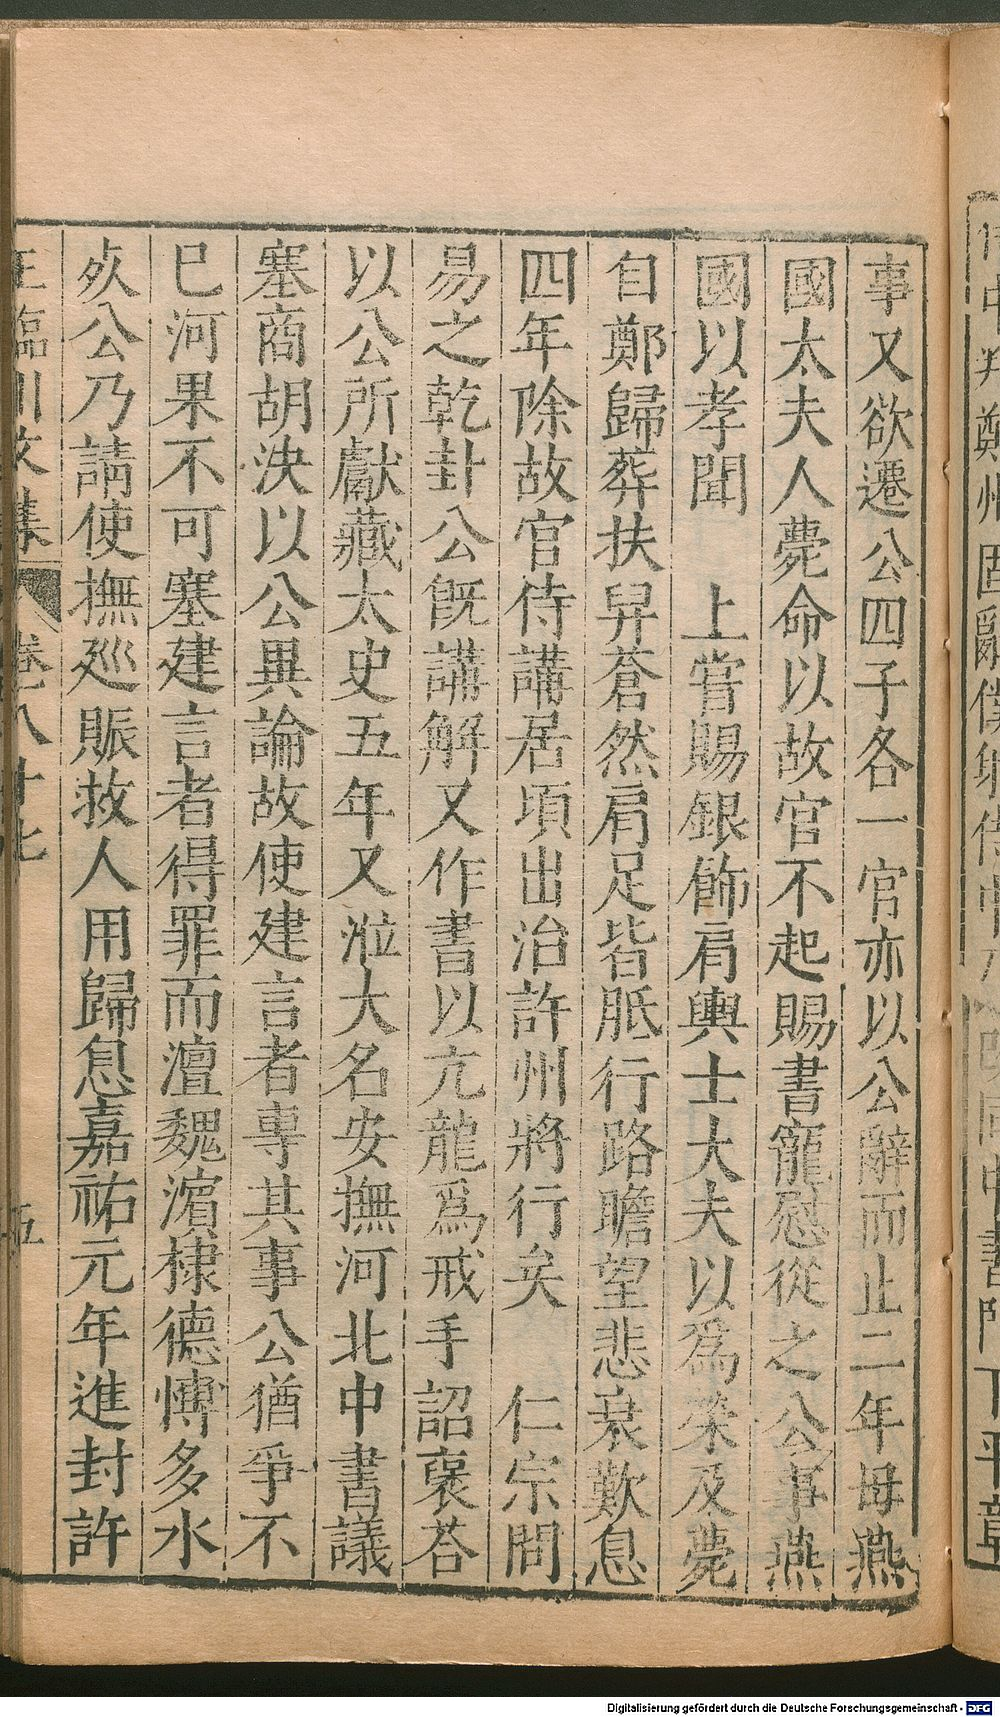 事又欲遷公四子各一官亦以公辭而止二年母燕
國太夫人薨命以故官不起賜書寵慰從之公事燕
國以孝聞　上嘗賜銀飾肩輿士大夫以爲榮及薨
自鄭歸葬扶舁蒼然肩足皆胝行路瞻望悲哀歎息
四年除故官侍講居頃出治許州將行矣　仁宗問
易之乾卦公旣講解又作書以亢龍爲戒手詔褒荅
以公所獻藏太史五年又涖大名安撫河北中書議
塞商胡決以公異論故使建言者專其事公猶爭不
已河果不可塞建言者得罪而澶魏濱棣德博多水
灾公乃請使撫巡賑救人用歸息嘉祐元年進封許
王臨川文集　卷八十七　五
Digitalisierung gefördert durch die Deutsche Forschungsgemeinschaft - DFG